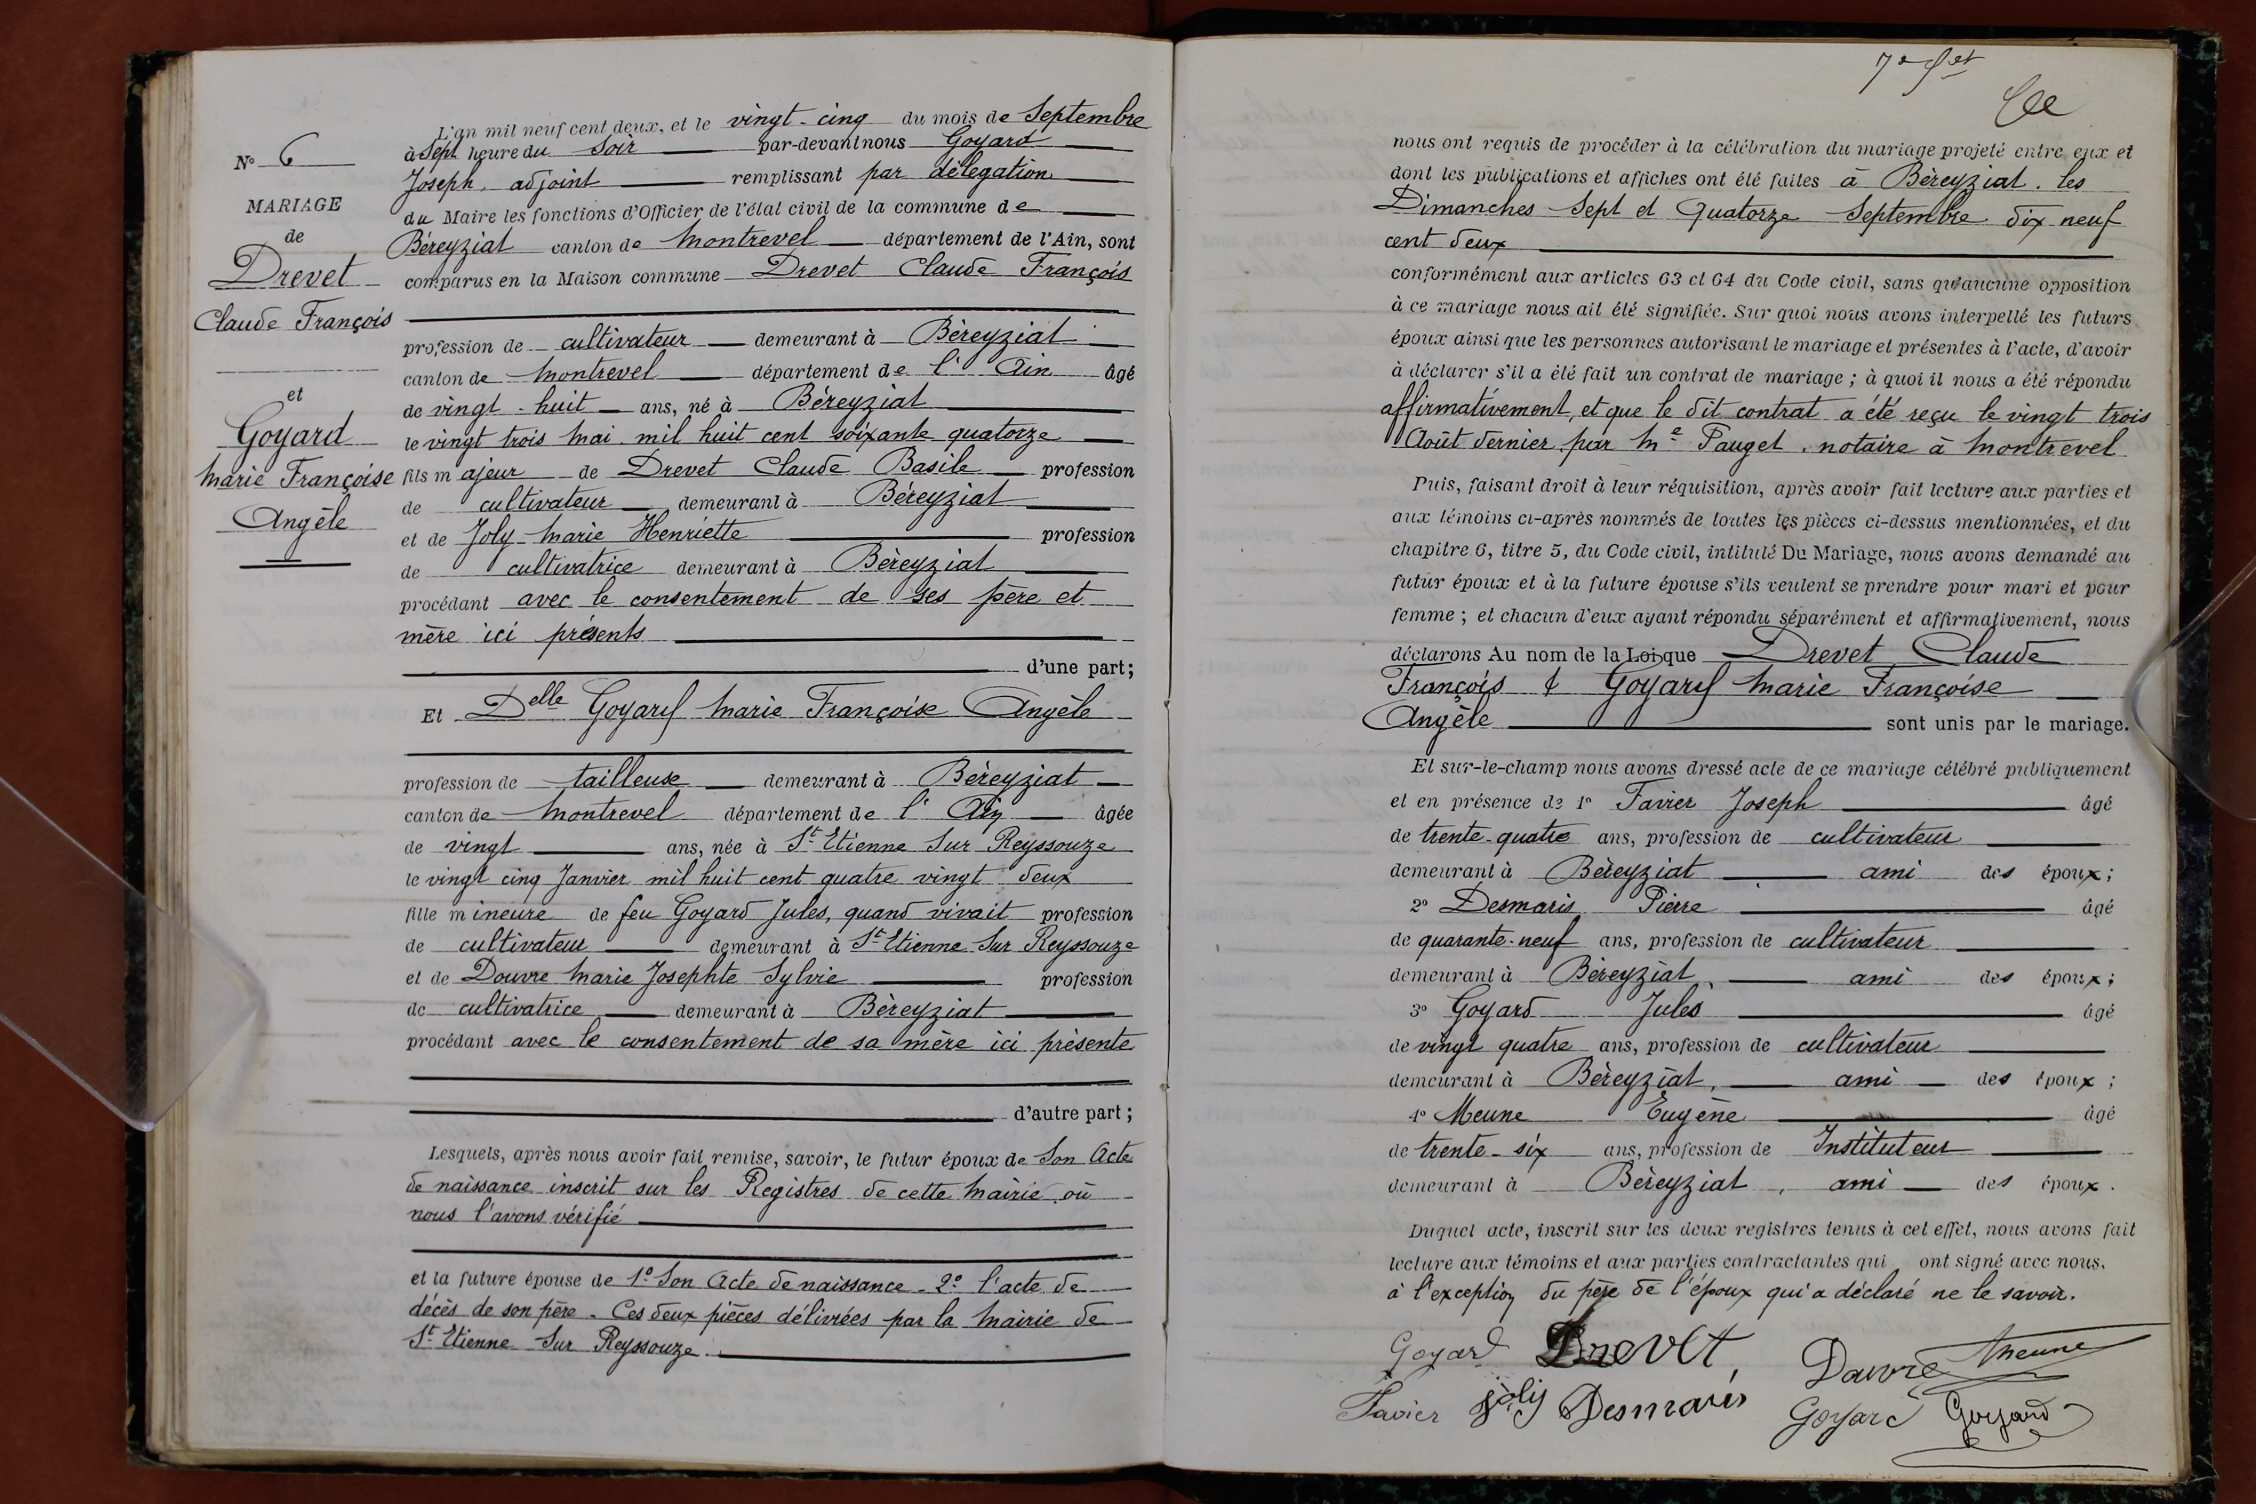 N° 6
MARIAGE
de
Drevet
Claude François
et
Goyard
Marie Françoise
Angèle
L'an mil neuf cent deux, et le vingt-cinq du mois de Septembre
à Sept heure du Soir par-devant nous Goyard
Joseph, adjoint remplissant par délégation
du Maire les fonctions d'Officier de l'état civil de la commune de
Béreyziat canton de Montrevel département de l'Ain, sont
comparus en la Maison commune Drevet Claude François
profession de cultivateur demeurant à Béreyziat
canton de Montrevel département de l'Ain âgé
de vingt-huit ans, né à Béreyziat
le vingt trois Mai mil huit cent soixante quatorze
fils majeur de Drevet Claude Basile profession
de cultivateur demeurant à Béreyziat
et de Joly Marie Henriette profession
de cultivatrice demeurant à Béreyziat
procédant avec le consentement de ses père et
mère ici présents
d'une part;
Et Delle Goyard Marie Françoise Angèle
profession de tailleuse demeurant à Béreyziat
canton de Montrevel département de l'Ain âgée
de vingt ans, née à St Etienne Sur Reyssouze
le vingt cinq Janvier mil huit cent quatre vingt deux
fille mineure de feu Goyard Jules, quand vivait profession
de cultivateur demeurant à St Etienne Sur Reyssouze
et de Douvre Marie Josephte Sylvie profession
de cultivatrice demeurant à Béreyziat
procédant avec le consentement de sa mère ici présente
d'autre part;
Lesquels, après nous avoir fait remise, savoir, le futur époux de Son Acte
de naissance inscrit sur les Registres de cette Mairie où
nous l'avons vérifié
et la future épouse de 1° Son Acte de naissance - 2° l'acte de
décès de son père - Ces deux pièces délivrées par la Mairie de
St Etienne Sur Reyssouze.
7e fet
nous ont requis de procéder à la célébration du mariage projeté entre eux et
dont les publications et affiches ont été faites à Béreyziat. les
Dimanches Sept et Quatorze Septembre dix neuf
cent deux
conformément aux articles 63 et 64 du Code civil, sans qu'aucune opposition
à ce mariage nous ait été signifiée. Sur quoi nous avons interpellé les futurs
époux ainsi que les personnes autorisant le mariage et présentes à l'acte, d'avoir
à déclarer s'il a été fait un contrat de mariage; à quoi il nous a été répondu
affirmativement, et que le dit contrat a été reçu le vingt trois
Août dernier par Me Pauget, notaire à Montrevel
Puis, faisant droit à leur réquisition, après avoir fait lecture aux parties et
aux témoins ci-après nommés de toutes les pièces ci-dessus mentionnées, et du
chapitre 6, titre 5, du Code civil, intitulé Du Mariage, nous avons demandé au
futur époux et à la future épouse s'ils veulent se prendre pour mari et pour
femme; et chacun d'eux ayant répondu séparément et affirmativement, nous
déclarons Au nom de la Loi que Drevet Claude
François & Goyard Marie Françoise
Angèle sont unis par le mariage.
Et sur-le-champ nous avons dressé acte de ce mariage célébré publiquement
et en présence de 1° Favier Joseph âgé
de trente-quatre ans, profession de cultivateur
demeurant à Béreyziat ami des époux;
2° Desmaris Pierre âgé
de quarante-neuf ans, profession de cultivateur
demeurant à Béreyziat, ami des époux;
3° Goyard Jules âgé
de vingt quatre ans, profession de cultivateur
demeurant à Béreyziat, ami des époux;
4° Meune Eugène âgé
de trente-six ans, profession de Instituteur
demeurant à Béreyziat, ami des époux.
Duquel acte, inscrit sur les deux registres tenus à cet effet, nous avons fait
lecture aux témoins et aux parties contractantes qui ont signé avec nous.
à l'exception du père de l'époux qui a déclaré ne le savoir.
Goyard Drevet Douvre Meune
Favier joly Desmaris Goyard Goyard